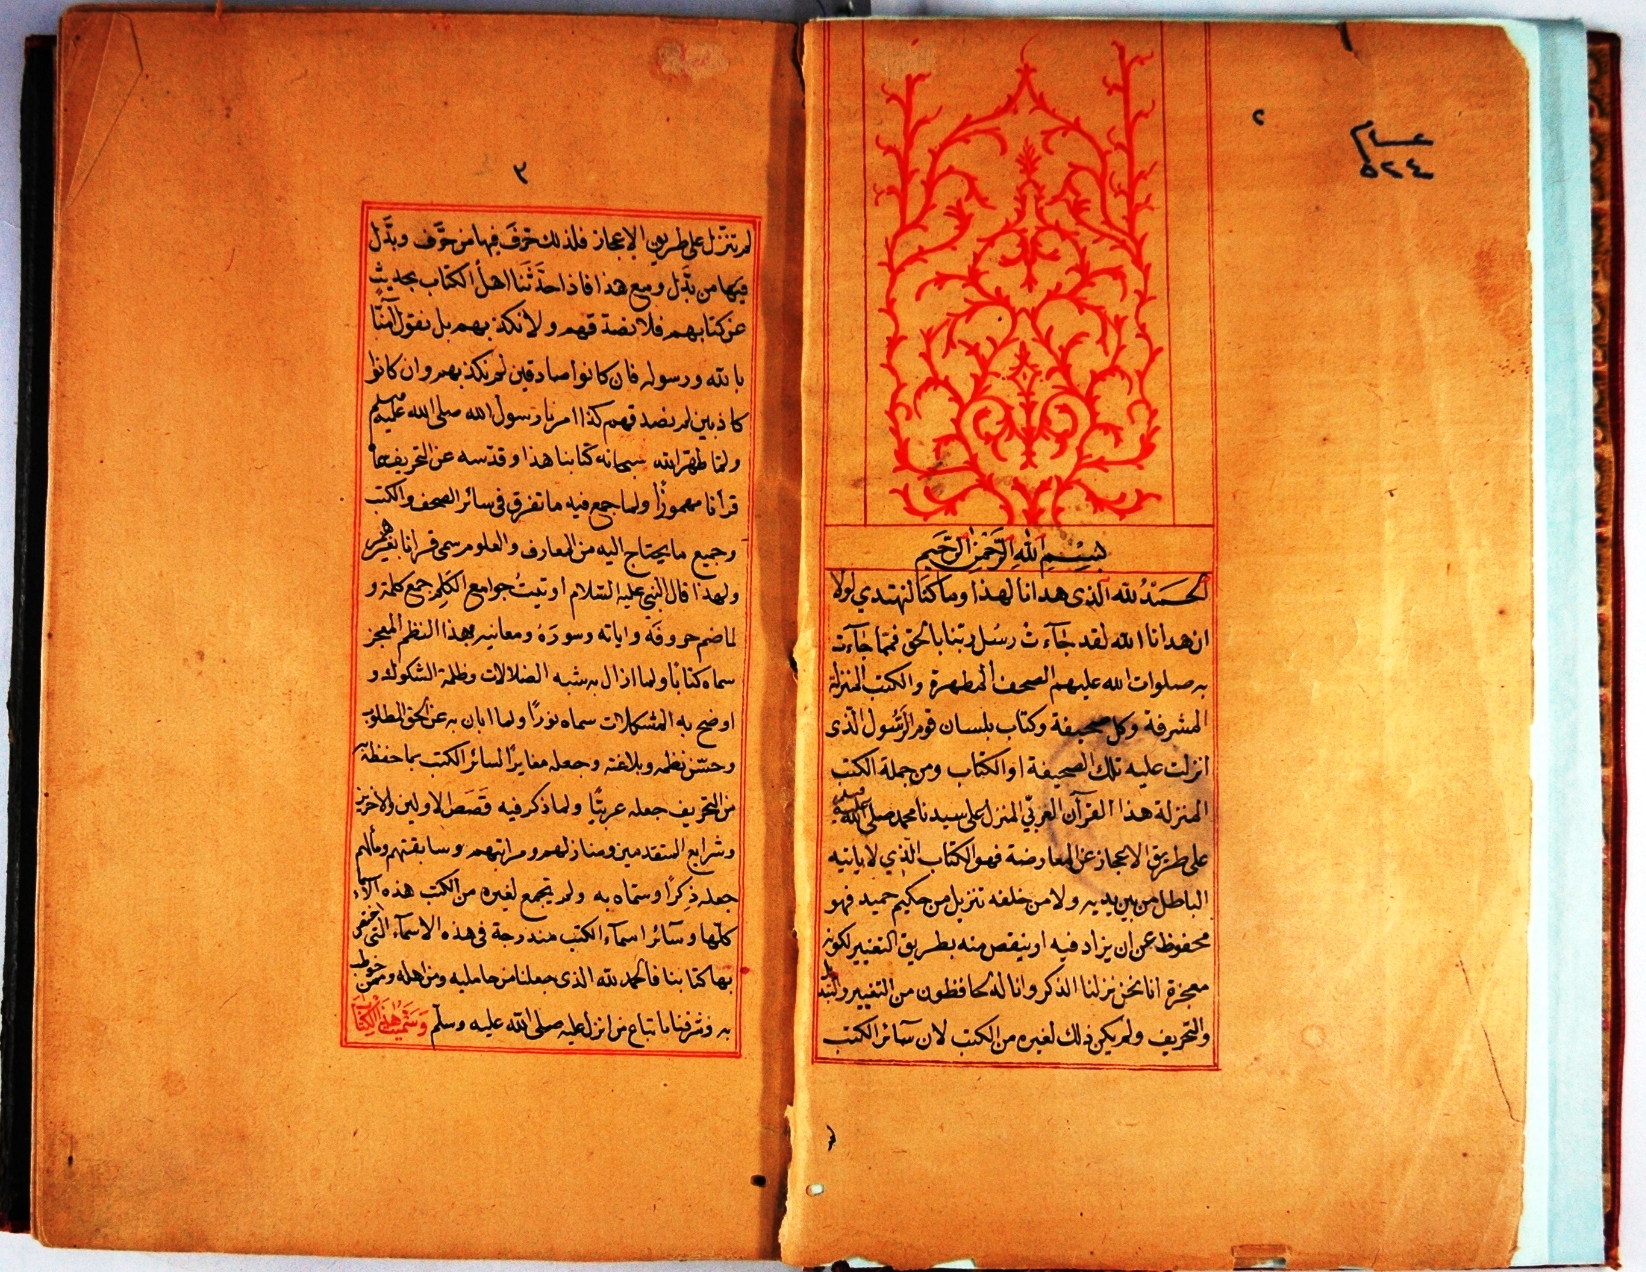 ٢
عام
٥٢٤
بسم الله الرحمن الرحيم
الحمد لله الذي هدانا لهذا وما كنا لنهتدي لولا
ان هدانا الله لقد جآءت رسل ربنا بالحق فمما جآءت
به صلوات الله عليهم الصحف المطهرة والكتب المنزلة
المشرفة وكل صحيفة وكتاب بلسان قوم الرسول الذى
انزلت عليه تلك الصحيفة او الكتاب ومن جملة الكتب
المنزلة هذا القرآن العربي المنزل على سيدنا محمد صلى الله عليه وسلم
على طريق الاعجاز عن المعارضة فهو الكتاب الذي لا ياتيه
الباطل من بين يديه ولا من خلفه تنزيل من حكيم حميد فهو
محفوظ عن ان يزاد فيه او ينقص منه بطريق التغيير لكونه
معجزة انا نحن نزلنا الذكر وانا له لحافظون من التغيير والتبديل
والتحريف ولم يكن ذلك لغيره من الكتب لان سآئر الكتب
لم
٣
لم تنزل على طريق الاعجاز فلذلك حرف فيها من حرف وبدل
فيها من بدل ومع هذا فاذا حدثنا اهل الكتاب بحديث
عن كتابهم فلا نصدقهم ولا نكذبهم بل نقول آمنا
بالله ورسوله فان كانوا صادقين لم نكذبهم وان كانوا
كاذبين لم نصدقهم كذا امرنا رسول الله صلى الله عليه وسلم
ولما طهر الله سبحانه كتابنا هذا وقدسه عن التحريف سماه
قرآنا مهموزا ولما جمع فيه ما تفرق فى سائر الصحف والكتب
وجميع ما يحتاج اليه من المعارف والعلوم سمى قرانا بغير همز
ولهذا قال النبي عليه السلام اوتيت جوامع الكلم جمع كلمة و
لما ضم حروفه واياته وسوره ومعانيه بهذا النظم المعجز
سماه كتابا ولما ازال به شبه الضلالات وظلمة الشكوك و
اوضح به المشكلات سماه نورا ولما ابان به عن الحق المطلوب
وحسن نظمه وبلاغته وجعله مغايرا لسائر الكتب بما حفظه به
من التحريف جعله عربيا ولما ذكر فيه قصص الاولين والاخرين
وشرايع المتقدمين ومنازلهم ومراتبهم وسابقتهم ومالهم
جعله ذكرا وسماه به ولم تجمع لغيره من الكتب هذه الاسماء
كلها وسآئر اسمآء الكتب مندرجة فى هذه الاسمآء التى اختص
بها كتابنا فالحمد لله الذى جعلنا من حامليه ومن اهله وممن خوطب
به وشرفنا باتباع من انزل عليه صلى الله عليه وسلم وسميت هذا الكتاب